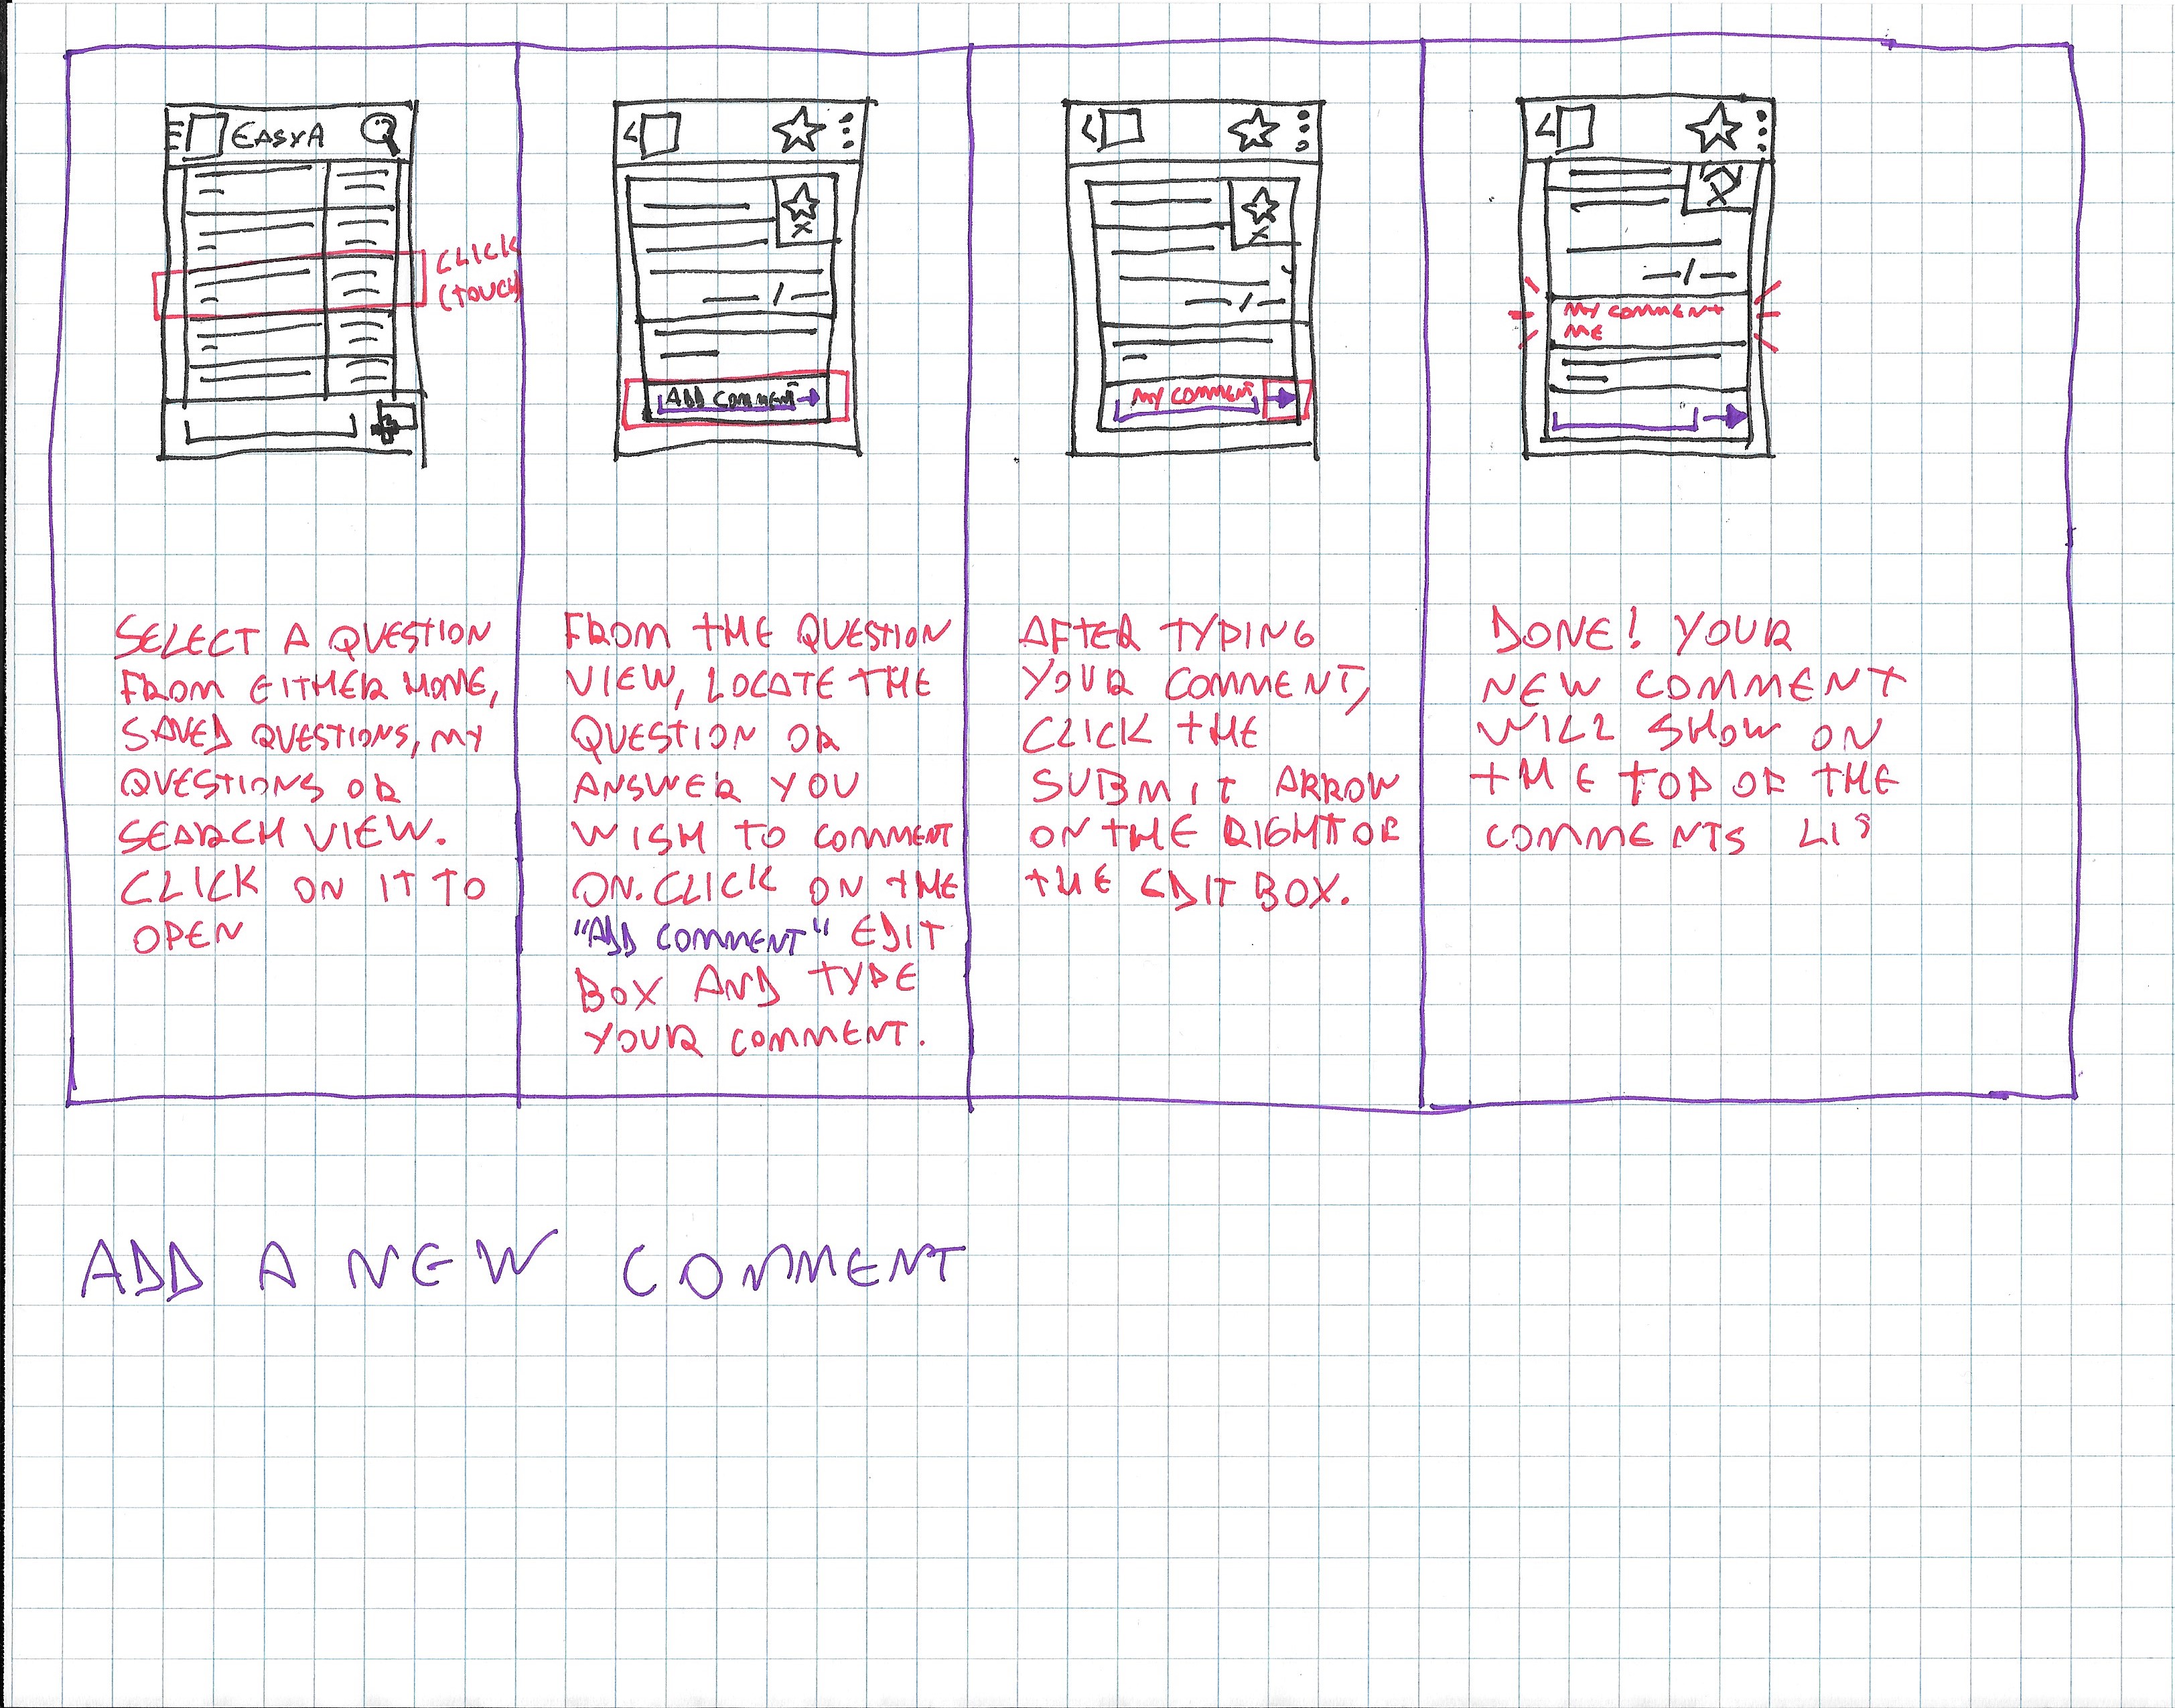 EASYA
CLICK
(TOUCH)
ADD COMMENT
MY COMMENT
MY COMMENT
ME
SELECT A QUESTION
FROM EITHER HOME,
SAVED QUESTIONS, MY
QUESTIONS OR
SEARCH VIEW.
CLICK ON IT TO
OPEN
FROM THE QUESTION
VIEW, LOCATE THE
QUESTION OR
ANSWER YOU
WISH TO COMMENT
ON. CLICK ON THE
"ADD COMMENT" EDIT
BOX AND TYPE
YOUR COMMENT.
AFTER TYPING
YOUR COMMENT,
CLICK THE
SUBMIT ARROW
ON THE RIGHT OF
THE EDIT BOX.
DONE! YOUR
NEW COMMENT
WILL SHOW ON
THE TOP OF THE
COMMENTS
ADD A NEW COMMENT